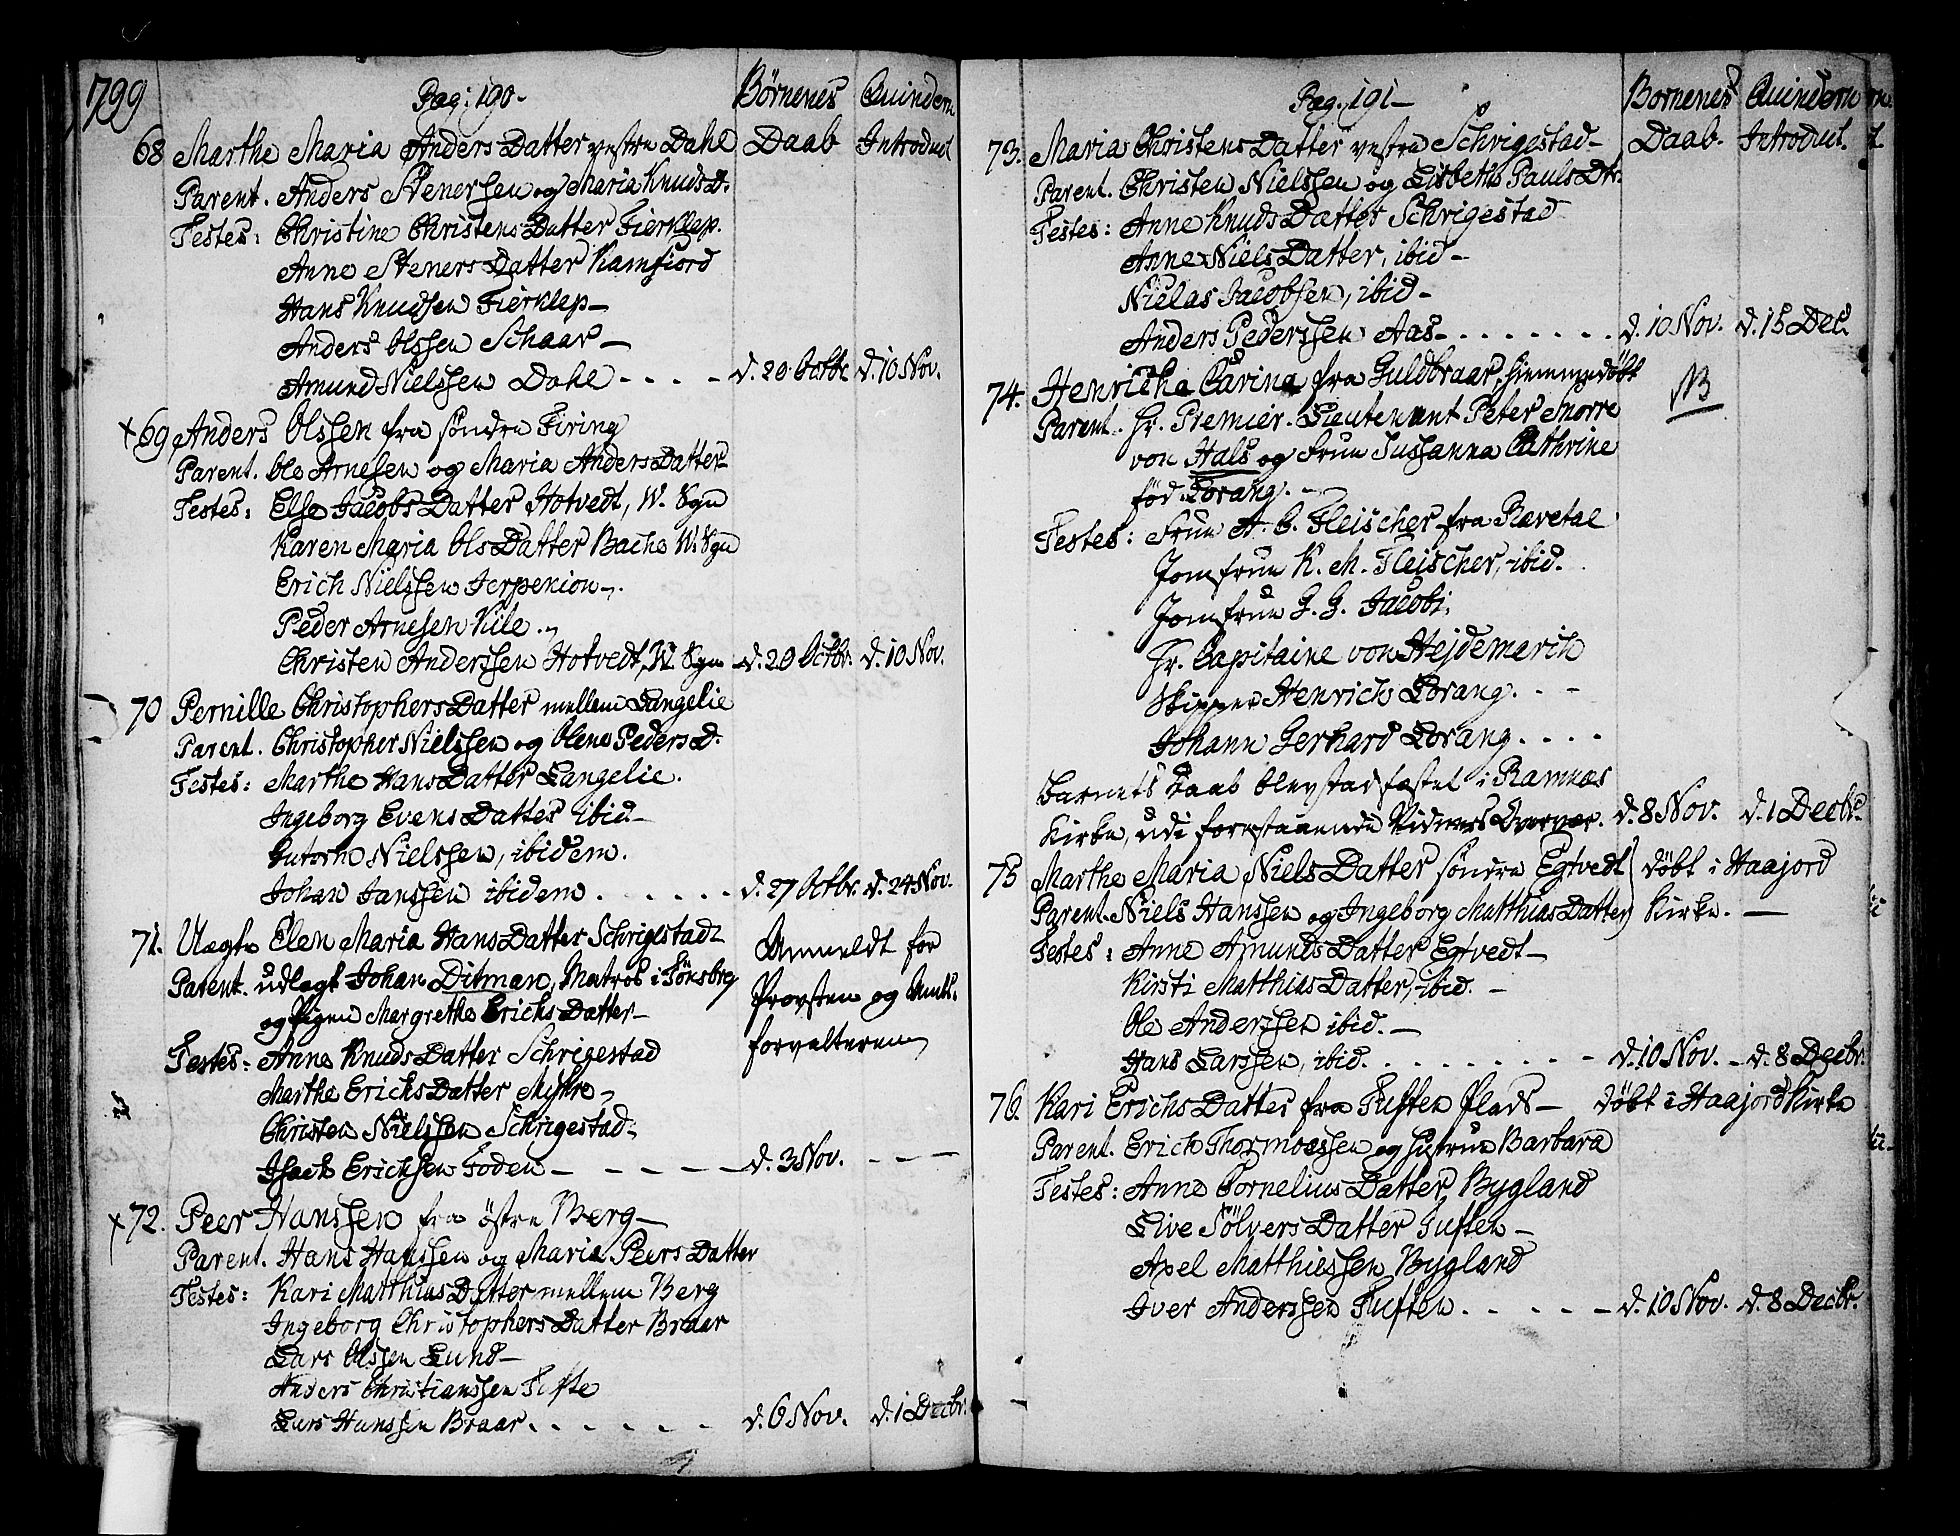 1799
Pag: 190.
Børnenes Quindern
68 Marthe Maria Anders Datter vestre Dahl Daab Introduct
Parent. Anders Stenersen og Maria Knuds D.
Testes: Christine Christens Datter Fierklep.
Anne Steners Datter Kamfiord
Hans Knudsen Fierklep
Anders Olssen Schaar
Amund Nielssen Dahl d. 20 Octbr. d. 10 Nov.
+69 Anders Olssen fra søndre Firing
Parent. Ole Arnesen og Maria Anders Datter
Testes: Else Jacobs Datter Hotvedt, W. Sgn
Karen Maria Ols Datter Bache W. Sgn
Erich Nielssen Jerpekion
Peder Arnesen Kile
Christen Anderssen Hotvedt, W. Sgn d. 20 Octbr. d. 10 Nov.
70 Pernille Christophers Datter mellem Langelie
Parent. Christopher Nielssen og Olene Peders D.
Testes: Marthe Hans Datter Langelie.
Ingeborg Evens Datter ibid
Nielssen, ibidem.
Johan Janssen ibidem d. 27 Octbr. d. 24 Nov.
71. Uægte Elen Maria Hans Datter Schrigestad Anmeldt for
Parent. udlagt Johan Ditman, Matros i Tønsberg Provsten og Amts-
og Pigen Margrethe Erichs Datter forvalteren
Testes: Anne Knuds Datter Schrigestad
Marthe Erichs Datter Myhre
Christen Nielssen Schrigestad
Isach Erichsen Foden d. 3 Nov.
+72. Peer Hanssen fra østre Berg
Parent. Hans Hanssen og Maria Peers Datter
Testes: Kari Matthias Datter mellem Berg
Ingeborg Christophers Datter Braar
Lars Olssen Lund
Anders Christianssen Tufte
Lars Hanssen Braar d. 6 Nov. d. 1 Decbr.
Pag. 191
Børnenes Quindern
73. Maria Christens Datter vestre Schrigestad Daab. Introduct.
Parent. Christen Nielssen og Lisbeth Pauls Dtr.
Testes: Anne Knuds Datter Schrigestad
Anne Niels Datter, ibid
Nielas Jacobsen, ibid
Anders Pederssen Aas d. 10 Nov. d. 15 Dec.
74. Henricha Carina fra Guldbraar, hiemmedøbt NB
Parent. Hr. Premier-Lieutenant Peter Snorre
von Hals og Frue Sussanna Cathrine
fød Lorang.
Testes: Frue A. C. Fleischer fra Rævetal
Jomfrue K. M. Fleischer, ibid.
Jomfrue G. G. Jacobi,
Hr. Capitaine von Hejdemarck
Skipper Henrich Lorang.
Johann Gerhard Lorang
Barnets Daab blev stadfæstet i Ramnæs
Kirke, udi forestaaende Vidners Overvær. d. 8 Nov. d. 1 Decbr.
75 Marthe Maria Niels Datter søndre Egtvedt døbt i Haajord
Parent. Niels Hanssen og Ingeborg Matthias Datter Kirke.
Testes: Anne Amunds Datter Egtvedt
Kirsti Matthias Datter, ibid.
Ole Anderssen ibid.
Hans Larssen, ibid. d. 10 Nov. d. 8 Decbr.
76. Kari Erichs Datter fra Tuften Plads døbt i Haajord Kirke
Parent. Erich Thormoessen og Hustrue Barbara
Testes: Anne Cornelius Datter Bygland
Live Sølvers Datter Tuften
Axel Matthiessen Bygland
Iver Anderssen Tuften d. 10 Nov. d. 8 Decbr.